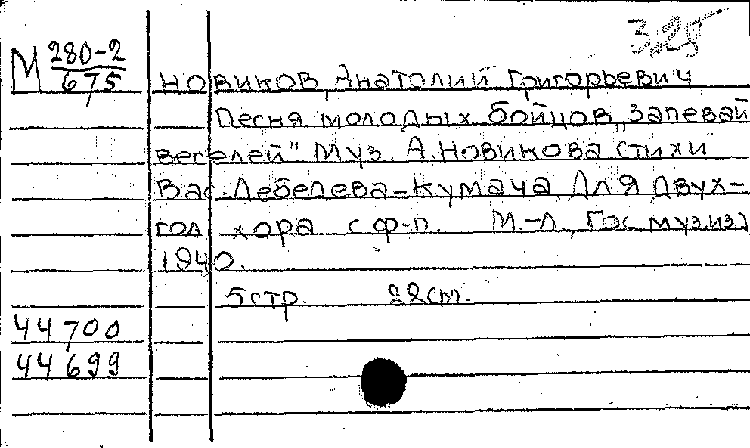 3,25
М 280-2
675
Новиков, Анатолий Григорьевич
Песня молодых бойцов „Запевай
веселей" Муз. А. Новикова стихи
Вас. Лебедева-Кумача. Для двух-
гол. хора с ф-п. М.-Л., Гос. музизд
1940.
5 стр. 22 см.
44700
44699